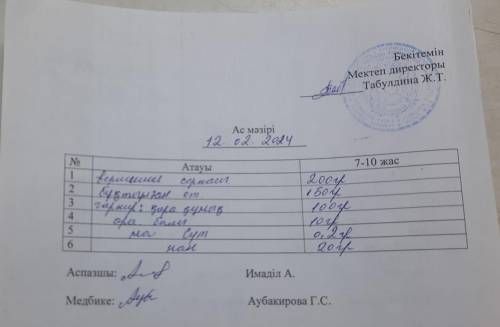 Бекітемін
Мектеп директоры
Табулдина Ж.Т.
Ас мәзірі
12. 02. 2024
№ Атауы 7-10 жас
1 вермишел сорпасы 200гр
2 бұқтырған ет 150гр
3 гарнир: қара құмық 100гр
4 ара балы 10гр
5 май сүт 0,2гр
6 нан 20гр
Аспазшы: Имаділ А.
Медбике: Аубакирова Г.С.